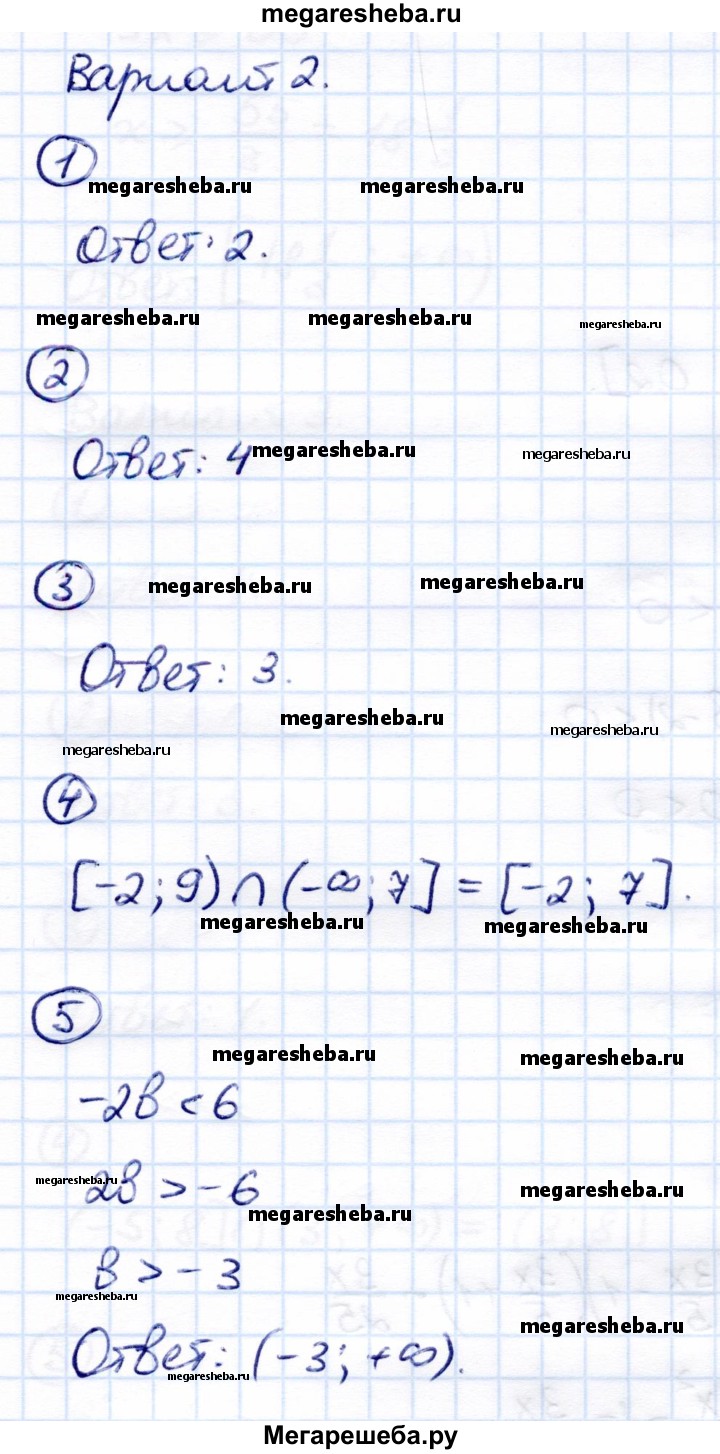 megaresheba.ru
Вариант 2.
1
megaresheba.ru megaresheba.ru
Ответ: 2.
megaresheba.ru megaresheba.ru megaresheba.ru
2
Ответ: 4 megaresheba.ru megaresheba.ru
3
megaresheba.ru megaresheba.ru
Ответ: 3.
megaresheba.ru megaresheba.ru
megaresheba.ru
4
[-2; 9) ∩ (-∞; 7] = [-2; 7].
megaresheba.ru megaresheba.ru
5
megaresheba.ru megaresheba.ru
-2в < 6
megaresheba.ru 2в > -6 megaresheba.ru
megaresheba.ru
в > -3
megaresheba.ru megaresheba.ru
Ответ: (-3; +∞).
megaresheba.ru
Мегарешеба.ру